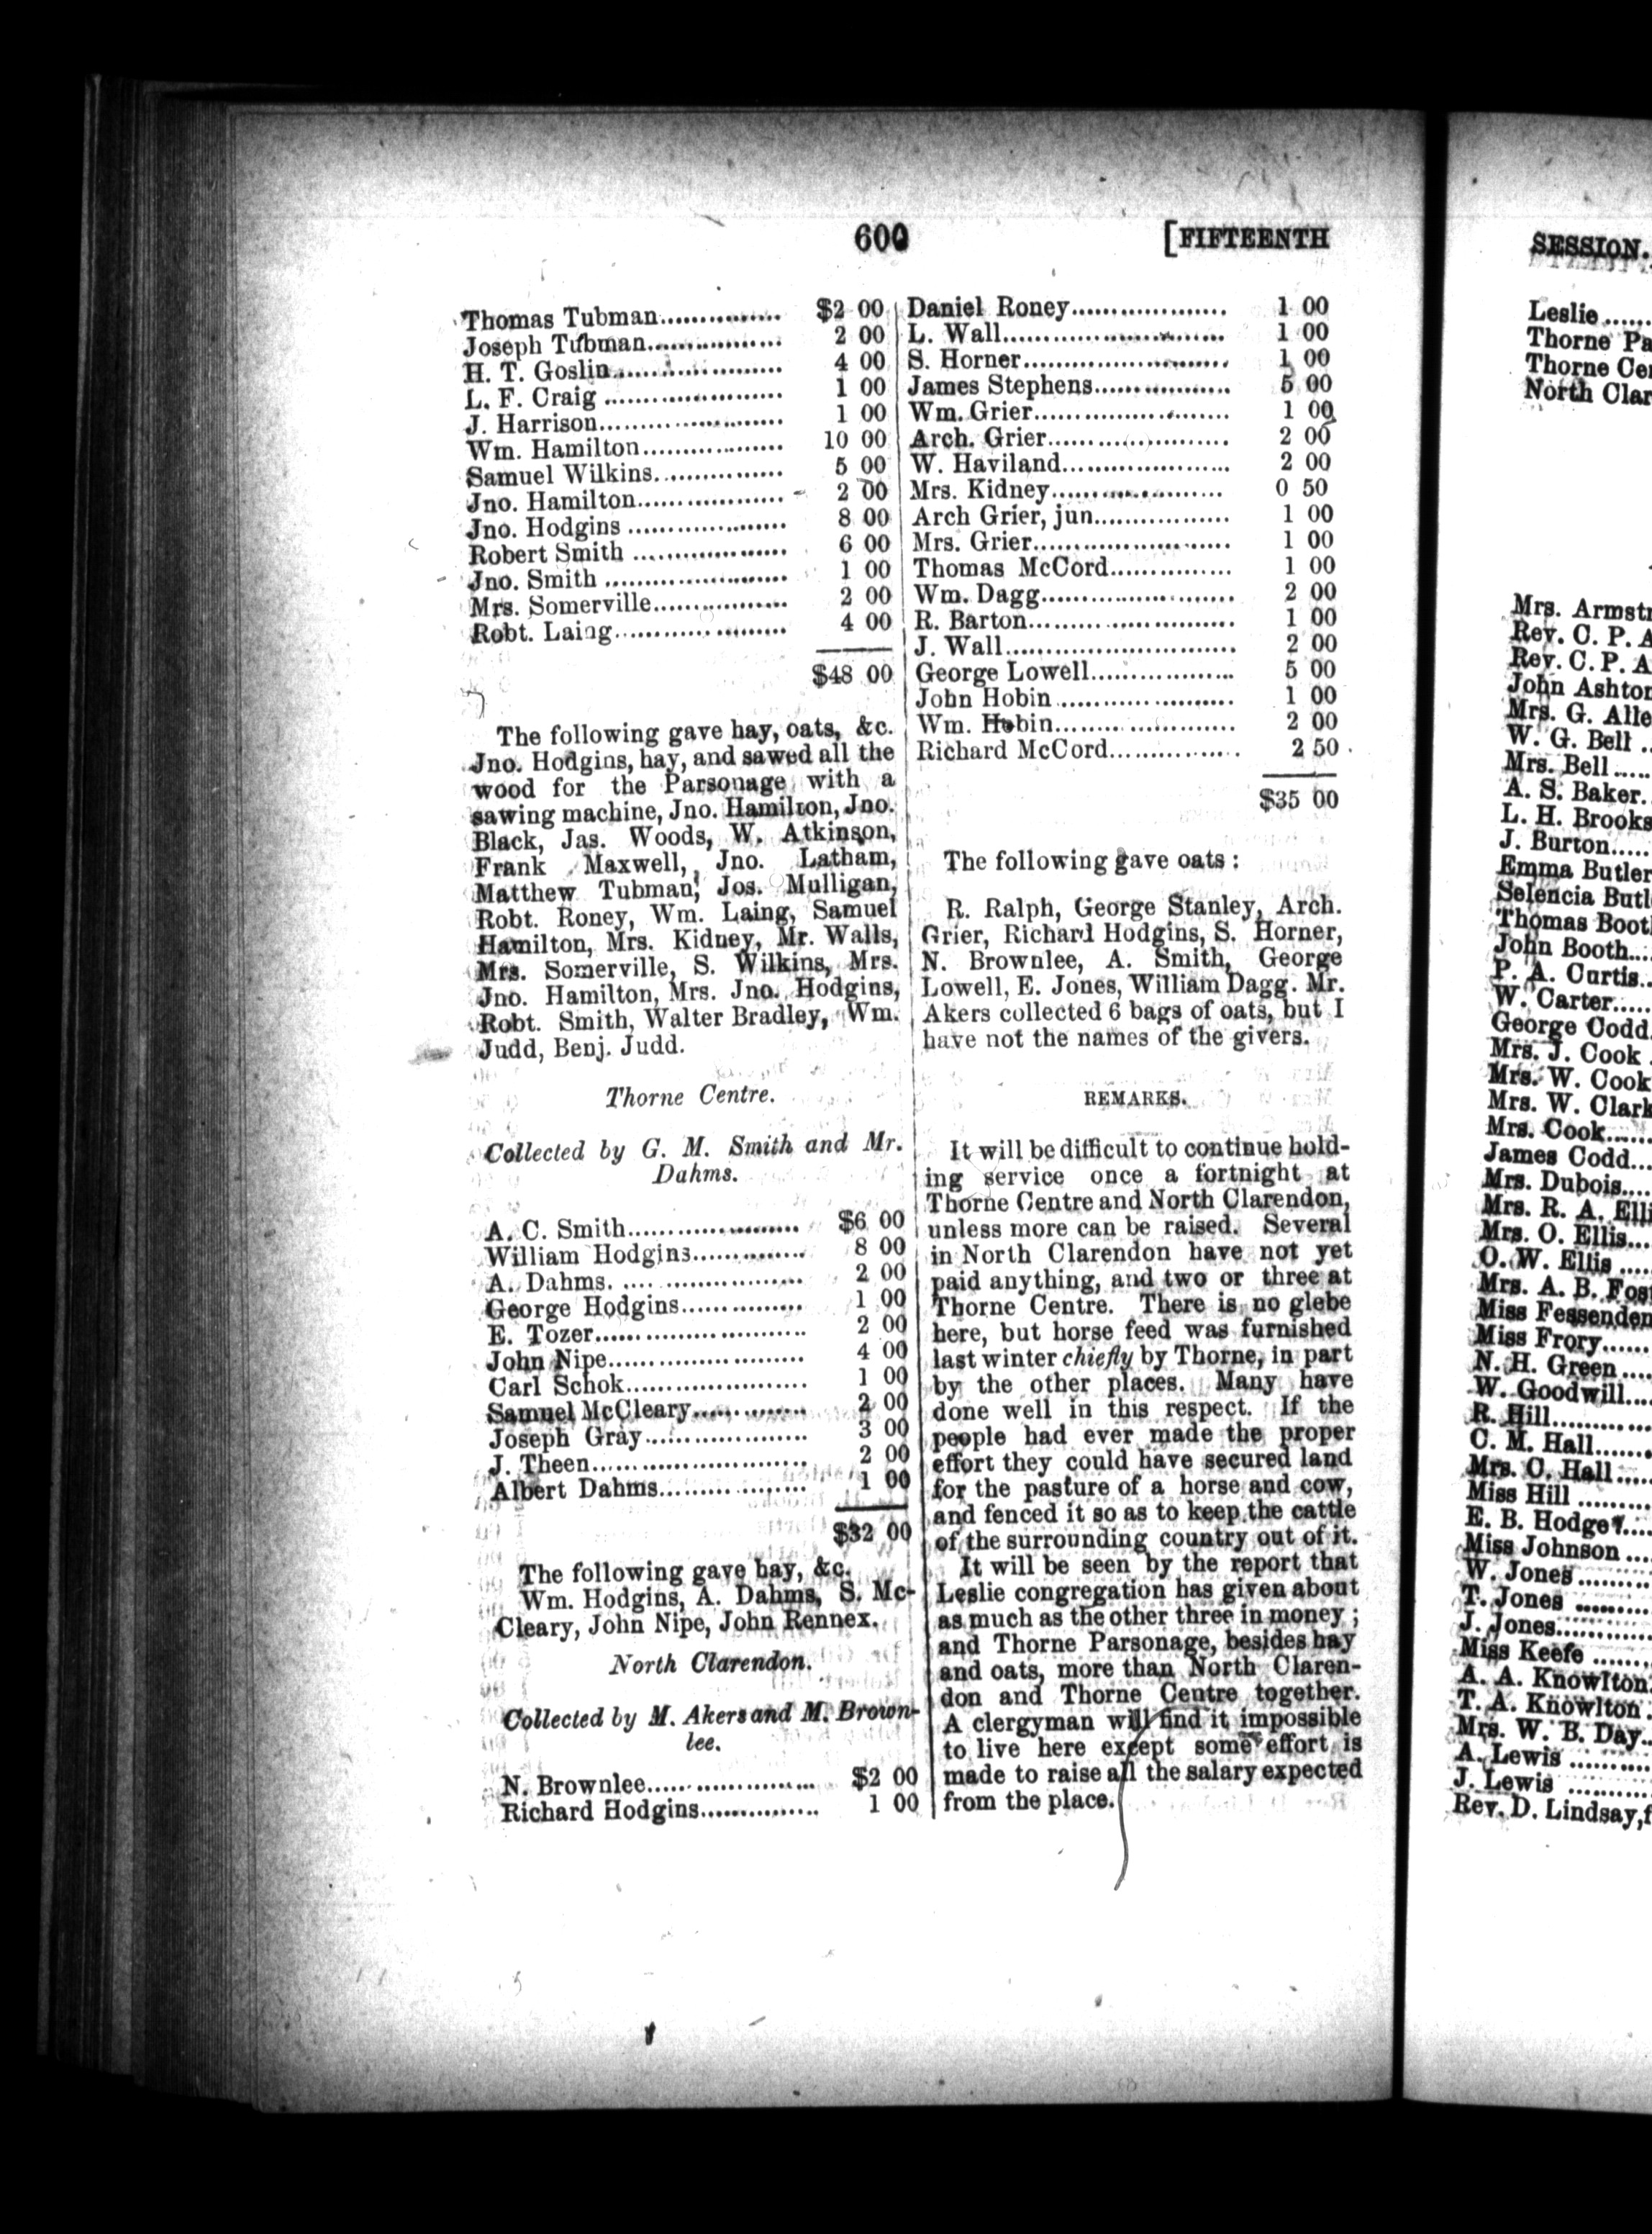 600
[FIFTEENTH
Thomas Tubman............... $2 00
Joseph Tubman................ 2 00
H. T. Goslin.................... 4 00
L. F. Craig ...................... 1 00
J. Harrison....................... 1 00
Wm. Hamilton................. 10 00
Samuel Wilkins................ 5 00
Jno. Hamilton.................. 2 00
Jno. Hodgins ................... 8 00
Robert Smith ................... 6 00
Jno. Smith ....................... 1 00
Mrs. Somerville................ 2 00
Robt. Laing...................... 4 00
$48 00
The following gave hay, oats, &c.
Jno. Hodgins, hay, and sawed all the
wood for the Parsonage with a
sawing machine, Jno. Hamilton, Jno.
Black, Jas. Woods, W. Atkinson,
Frank Maxwell, Jno. Latham,
Matthew Tubman, Jos. Mulligan,
Robt. Roney, Wm. Laing, Samuel
Hamilton, Mrs. Kidney, Mr. Walls,
Mrs. Somerville, S. Wilkins, Mrs.
Jno. Hamilton, Mrs. Jno. Hodgins,
Robt. Smith, Walter Bradley, Wm.
Judd, Benj. Judd.
Thorne Centre.
Collected by G. M. Smith and Mr.
Dahms.
A. C. Smith..................... $6 00
William Hodgins.............. 8 00
A. Dahms. ...................... 2 00
George Hodgins............... 1 00
E. Tozer.......................... 2 00
John Nipe........................ 4 00
Carl Schok....................... 1 00
Samuel McCleary.............. 2 00
Joseph Gray..................... 3 00
J. Theen.......................... 2 00
Albert Dahms................... 1 00
$32 00
The following gave hay, &c.
Wm. Hodgins, A. Dahms, S. Mc-
Cleary, John Nipe, John Rennex.
North Clarendon.
Collected by M. Akers and M. Brown-
lee.
N. Brownlee.................... $2 00
Richard Hodgins............... 1 00
Daniel Roney................... 1 00
L. Wall........................... 1 00
S. Horner........................ 1 00
James Stephens................ 5 00
Wm. Grier....................... 1 00
Arch. Grier...................... 2 00
W. Haviland.................... 2 00
Mrs. Kidney..................... 0 50
Arch Grier, jun................. 1 00
Mrs. Grier....................... 1 00
Thomas McCord............... 1 00
Wm. Dagg....................... 2 00
R. Barton........................ 1 00
J. Wall........................... 2 00
George Lowell.................. 5 00
John Hobin...................... 1 00
Wm. Hobin...................... 2 00
Richard McCord............... 2 50
$35 00
The following gave oats :
R. Ralph, George Stanley, Arch.
Grier, Richard Hodgins, S. Horner,
N. Brownlee, A. Smith, George
Lowell, E. Jones, William Dagg. Mr.
Akers collected 6 bags of oats, but I
have not the names of the givers.
REMARKS.
It will be difficult to continue hold-
ing service once a fortnight at
Thorne Centre and North Clarendon,
unless more can be raised. Several
in North Clarendon have not yet
paid anything, and two or three at
Thorne Centre. There is no glebe
here, but horse feed was furnished
last winter chiefly by Thorne, in part
by the other places. Many have
done well in this respect. If the
people had ever made the proper
effort they could have secured land
for the pasture of a horse and cow,
and fenced it so as to keep the cattle
of the surrounding country out of it.
It will be seen by the report that
Leslie congregation has given about
as much as the other three in money ;
and Thorne Parsonage, besides hay
and oats, more than North Claren-
don and Thorne Centre together.
A clergyman will find it impossible
to live here except some effort is
made to raise all the salary expected
from the place.
SESSION.
Leslie......
Thorne Pa
Thorne Cen
North Clar
Mrs. Armstr
Rev. C. P. A
Rev. C. P. A
John Ashton
Mrs. G. Alle
W. G. Bell ..
Mrs. Bell .....
A. S. Baker.
L. H. Brooks
J. Burton.....
Emma Butler
Selencia Butl
Thomas Boot
John Booth...
P. A. Curtis..
W. Carter.....
George Codd.
Mrs. J. Cook .
Mrs. W. Cook
Mrs. W. Clark
Mrs. Cook......
James Codd...
Mrs. Dubois....
Mrs. R. A. Elli
Mrs. O. Ellis...
O. W. Ellis .....
Mrs. A. B. Fost
Miss Fessenden
Miss Frory.......
N. H. Green ....
W. Goodwill....
R. Hill............
C. M. Hall.......
Mrs. C. Hall .....
Miss Hill .........
E. B. Hodge....
Miss Johnson ....
W. Jones .........
T. Jones .........
J. Jones...........
Miss Keefe .......
A. A. Knowlton.
T. A. Knowlton .
Mrs. W. B. Day..
A. Lewis ..........
J. Lewis ..........
Rev. D. Lindsay, f